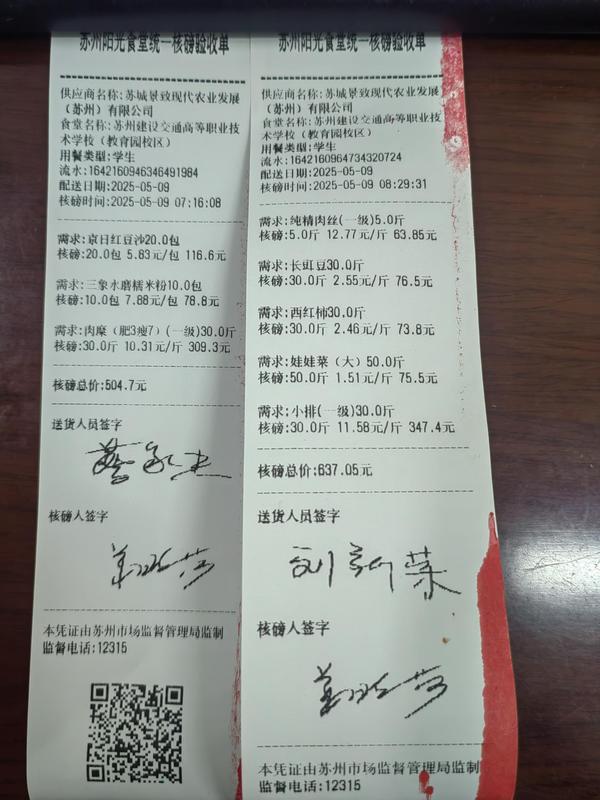 苏州阳光食堂统一核磅验收单
供应商名称:苏城景致现代农业发展
（苏州）有限公司
食堂名称:苏州建设交通高等职业技
术学校（教育园校区）
用餐类型:学生
流水:1642160946346491984
配送日期:2025-05-09
核磅时间:2025-05-09 07:16:08
需求:京日红豆沙20.0包
核磅:20.0包 5.83元/包 116.6元
需求:三象水磨糯米粉10.0包
核磅:10.0包 7.88元/包 78.8元
需求:肉糜（肥3瘦7）(一级)30.0斤
核磅:30.0斤 10.31元/斤 309.3元
核磅总价:504.7元
送货人员签字
核磅人签字
本凭证由苏州市场监督管理局监制
监督电话:12315
苏州阳光食堂统一核磅验收单
供应商名称:苏城景致现代农业发展
（苏州）有限公司
食堂名称:苏州建设交通高等职业技
术学校（教育园校区）
用餐类型:学生
流水:1642160964734320724
配送日期:2025-05-09
核磅时间:2025-05-09 08:29:31
需求:纯精肉丝(一级)5.0斤
核磅:5.0斤 12.77元/斤 63.85元
需求:长豇豆30.0斤
核磅:30.0斤 2.55元/斤 76.5元
需求:西红柿30.0斤
核磅:30.0斤 2.46元/斤 73.8元
需求:娃娃菜（大）50.0斤
核磅:50.0斤 1.51元/斤 75.5元
需求:小排(一级)30.0斤
核磅:30.0斤 11.58元/斤 347.4元
核磅总价:637.05元
送货人员签字
刘新荣
核磅人签字
本凭证由苏州市场监督管理局监制
监督电话:12315